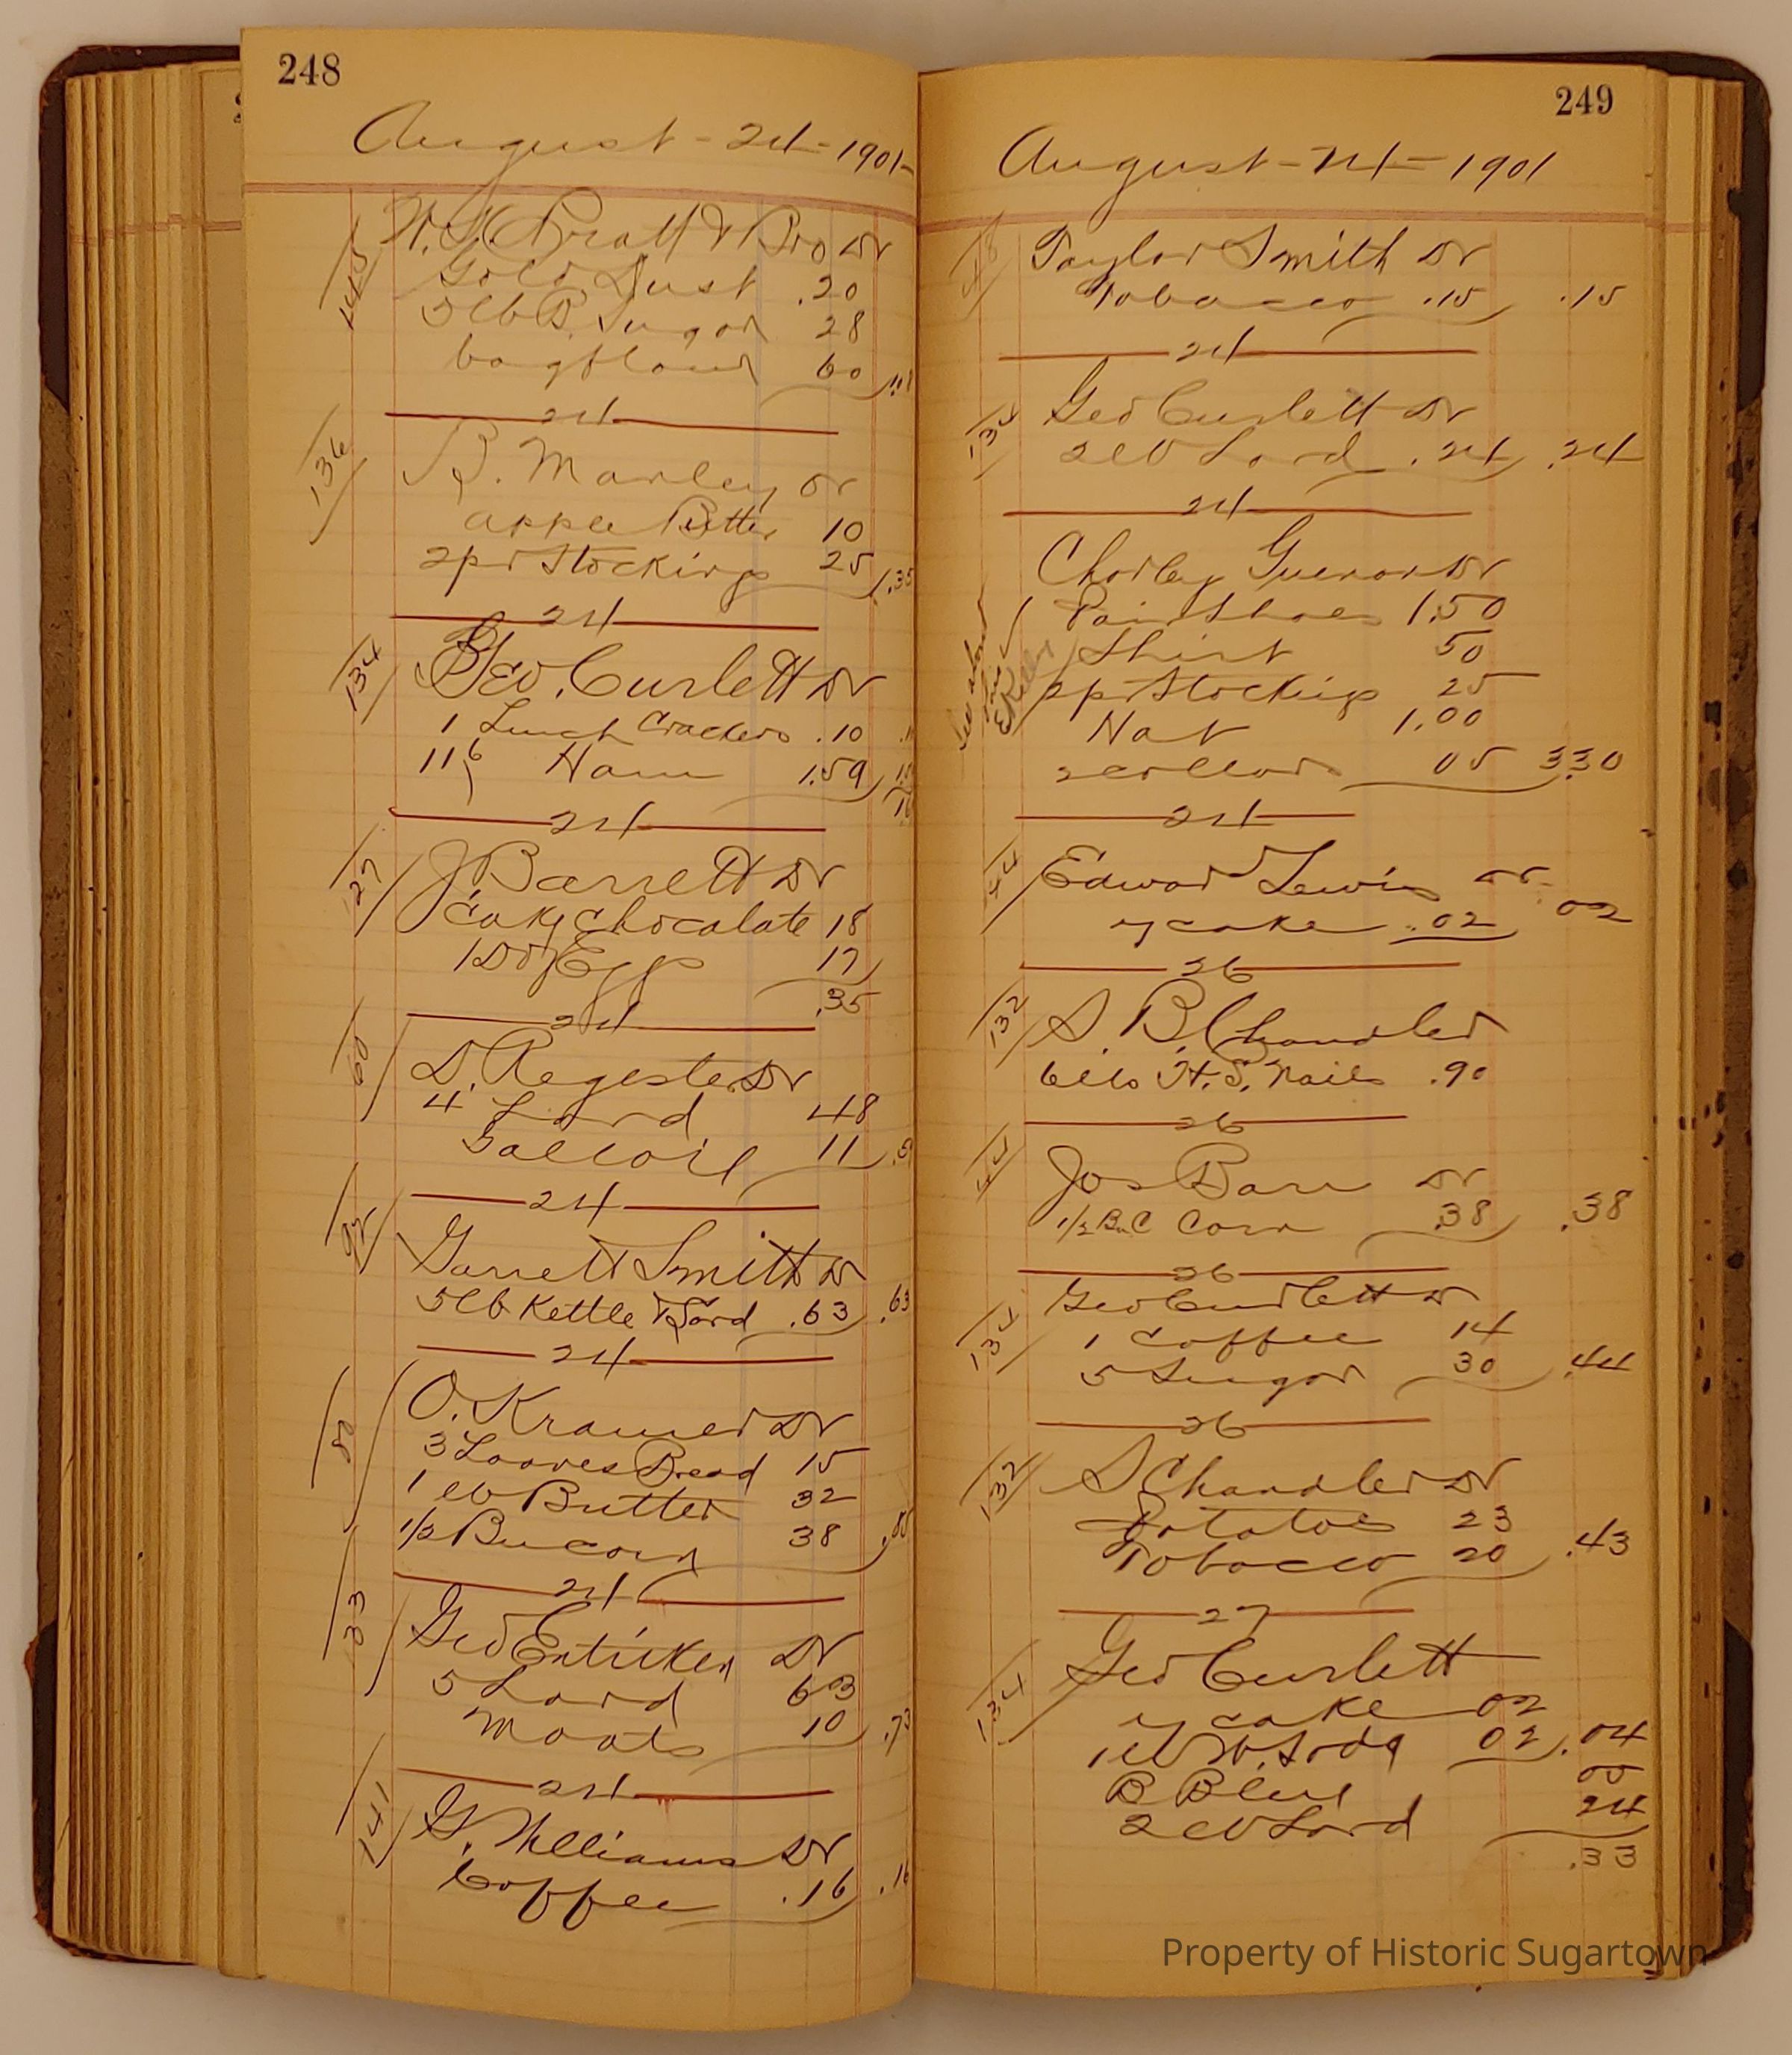 248
August - 24 - 1901 -
145
Pratt & Bro Dr
Gold Dust .20
5 lb B. Sugar 28
bag flour 60
24
136
B. Manley Dr
apple Butter 10
2 pr Stockings 25 .35
24
134
Geo. Curlett Dr
1 Lunch Crackers .10
11 6 Ham 1.59
24
27
J Barrett Dr
Cake Chocolate 18
1 Doz Egg 17
.35
24
60
D. Regester Dr
4 Lard 48
5 al coil 11
24
92
Garrett Smith Dr
5 lb Kettle R Lard .63 .63
24
80
O. Kramer Dr
3 Loaves Bread 15
1 lb Butter 32
1/2 Bu corn 38
24
33
Geo Entriken Dr
5 Lard 63
Meat 10 .73
24
141
G. Williams Dr
Coffee .16 .16
249
August - 24 - 1901
Taylor Smith Dr
Tobacco .15 .15
24
134
Geo Curlett Dr
2 lb Lard .24 .24
24
Charley Dr
Pair Shoes 1.50
Shirt 50
2 pr Stockings 25
Hat 1.00
2 collars 05 3.30
E Kelly
24
44
Edward Lewis Dr
y cake .02 02
26
132
S. B. Chandler
6 lbs H. S. Nails .90
26
44
Jos Barr Dr
1/2 Bu C Corn .38 .38
26
134
Geo Curlett Dr
1 Coffee 14
5 Sugar 30 .44
26
132
S Chandler Dr
Potatoes 23
Tobacco 20 .43
27
134
Geo Curlett
y cake 02
1 lb W. Soda 02 .04
B Blue 05
2 lb Lard 24
.33
Property of Historic Sugartown